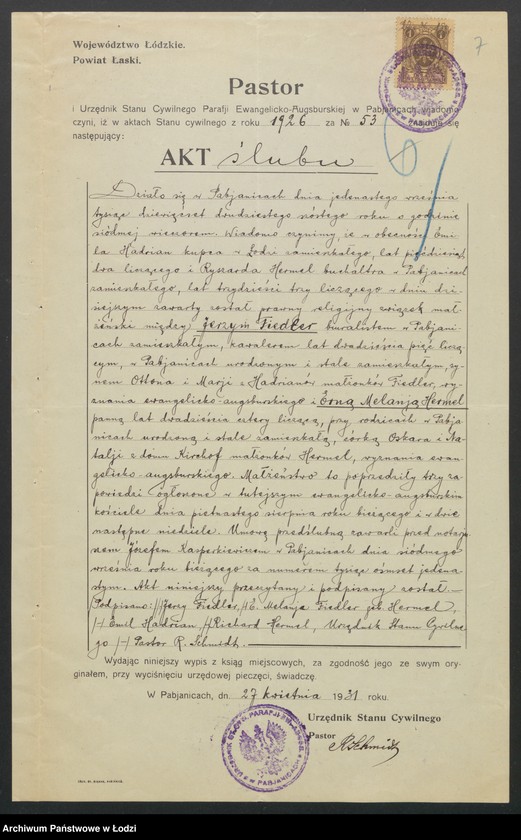 Województwo Łódzkie.
Powiat Łaski.
7
Pastor
i Urzędnik Stanu Cywilnego Parafji Ewangelicko-Augsburskiej w Pabjanicach wiadomo
czyni, iż w aktach Stanu cywilnego z roku 1926 za № 53 się
następujący:
AKT ślubu
Działo się w Pabjanicach dnia jedenastego września
tysiąc dziewięćset dwudziestego szóstego roku o godzinie
siódmej wieczorem. Wiadomo czynimy, że w obecności Emi-
la Hadrian kupca w Łodzi zamieszkałego, lat pięćdziesiąt
dwa liczącego i Ryszarda Hermel buchaltra w Pabjanicach
zamieszkałego, lat trzydzieści trzy liczącego w dniu dzi-
siejszym zawarty został prawny religijny związek mał-
żeński między Jerzym Fiedler biuralistem w Pabjani-
cach zamieszkałym, kawalerem lat dwadzieścia pięć liczą-
cym, w Pabjanicach urodzonym i stale zamieszkałym, sy-
nem Ottona i Marji z Hadrianów małżonków Fiedler, wy-
znania ewangelicko-augsburskiego i Erną Melanją Hermel
panną lat dwadzieścia cztery liczącą, przy rodzicach w Pabja-
nicach urodzoną i stale zamieszkałą, córką Oskara i Na-
talji z domu Kirchof małżonków Hermel, wyznania ewan-
gelicko-augsburskiego. Małżeństwo to poprzedziły trzy za-
powiedzi ogłoszone w tutejszym ewangelicko-augsburskim
kościele dnia piętnastego sierpnia roku bieżącego i w dwie
następne niedziele. Umowę przedślubną zawarli przed notarju-
szem Józefem Kasperkiewiczem w Pabjanicach dnia siódmego
września roku bieżącego za numerem tysiąc ośmset jedena-
stym. Akt niniejszy przeczytany i podpisany został.—
Podpisano: /-/ Jerzy Fiedler, /-/ E. Melanja Fiedler geb Hermel,
/-/ Emil Hadrian /-/ Richard Hermel, Urzędnik Stanu Cywilne-
go /-/ Pastor R. Schmidt.
Wydając niniejszy wypis z ksiąg miejscowych, za zgodność jego ze swym ory-
ginałem, przy wyciśnięciu urzędowej pieczęci, świadczę.
W Pabjanicach, dn. 27 kwietnia 1931 roku.
Urzędnik Stanu Cywilnego
Pastor RSchmidt
W PABJANICACH
Archiwum Państwowe w Łodzi